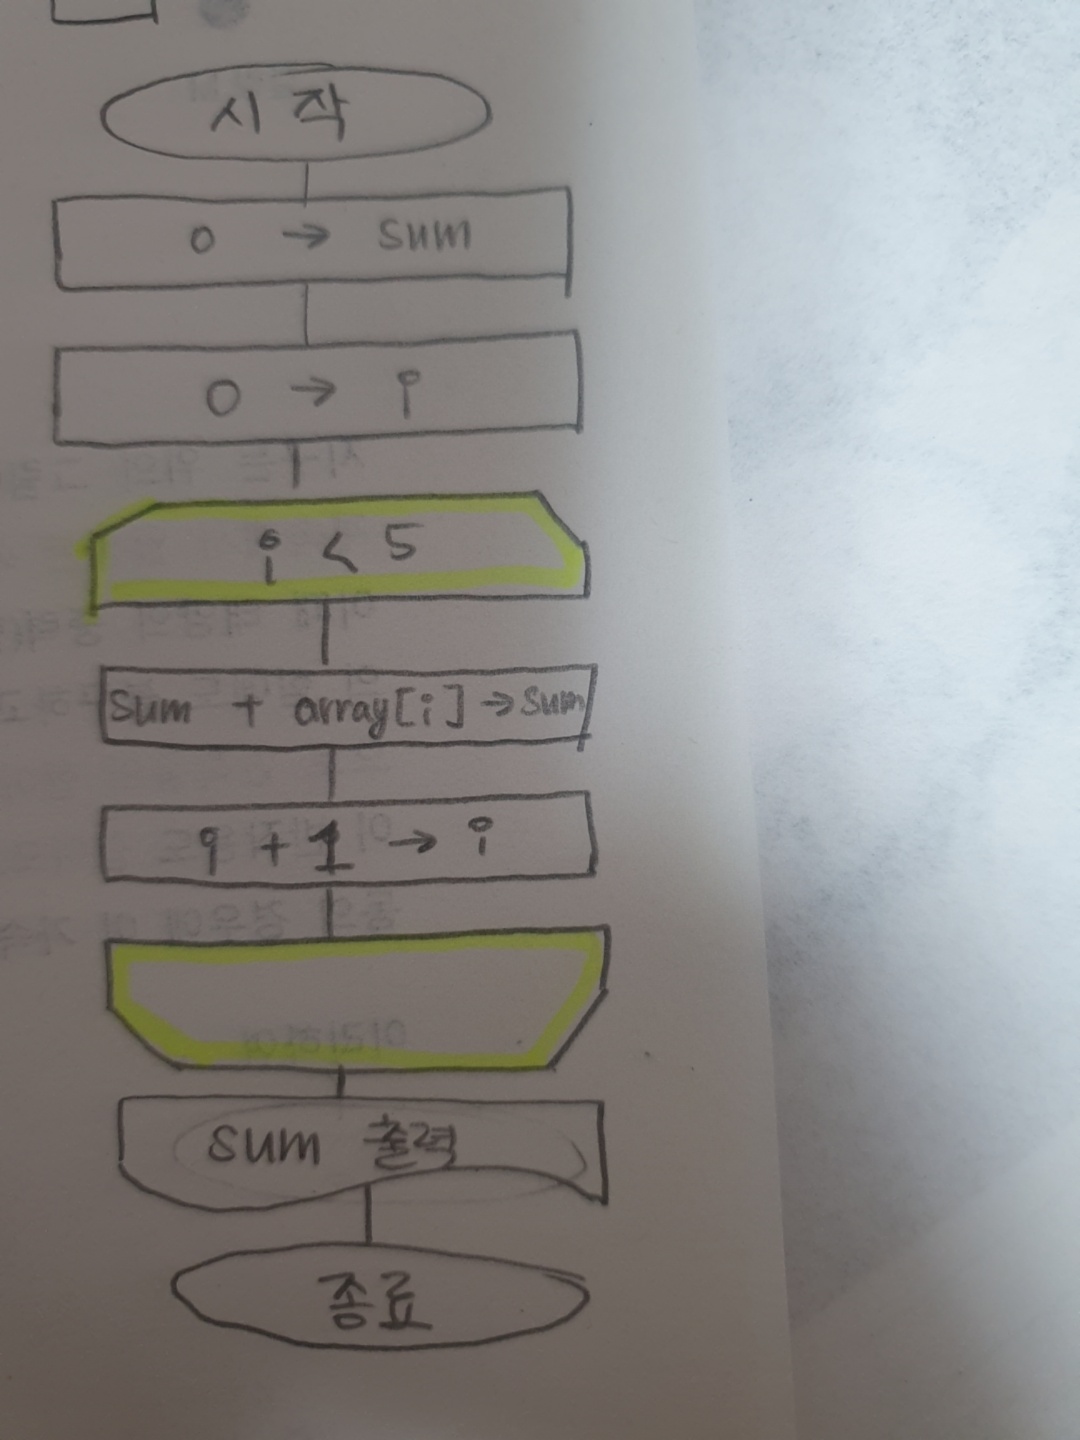 시작
0 → sum
0 → i
i < 5
sum + array[i] → sum
i + 1 → i
sum 출력
종료